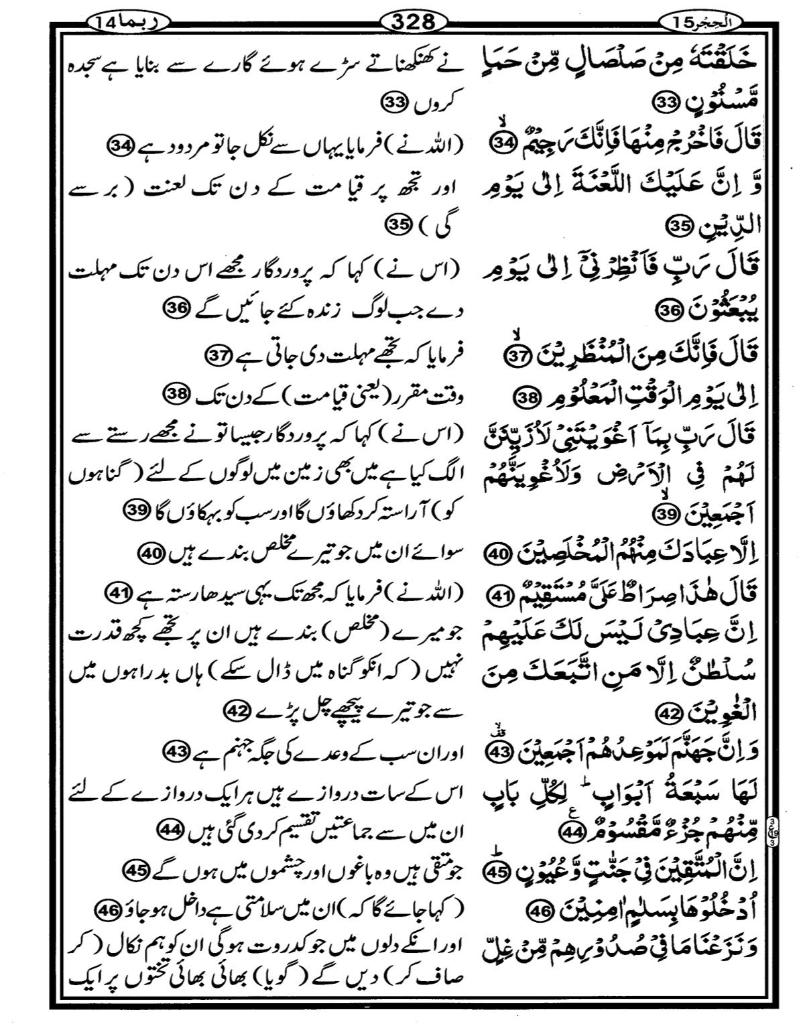 الحجر15
328
ربما14
خَلَقْتَهٗ مِنْ صَلْصَالٍ مِّنْ حَمَاٍ
مَّسْنُوْنٍ ㉝
قَالَ فَاخْرُجْ مِنْهَا فَاِنَّكَ رَجِيْمٌ ۙ ㉞
وَّ اِنَّ عَلَيْكَ اللَّعْنَةَ اِلٰى يَوْمِ
الدِّيْنِ ㉟
قَالَ رَبِّ فَاَنْظِرْنِيْۤ اِلٰى يَوْمِ
يُبْعَثُوْنَ ㊱
قَالَ فَاِنَّكَ مِنَ الْمُنْظَرِيْنَ ۙ ㊲
اِلٰى يَوْمِ الْوَقْتِ الْمَعْلُوْمِ ㊳
قَالَ رَبِّ بِمَاۤ اَغْوَيْتَنِيْ لَاُزَيِّنَنَّ
لَهُمْ فِي الْاَرْضِ وَلَاُغْوِيَنَّهُمْ
اَجْمَعِيْنَ ۙ ㊴
اِلَّا عِبَادَكَ مِنْهُمُ الْمُخْلَصِيْنَ ㊵
قَالَ هٰذَا صِرَاطٌ عَلَيَّ مُسْتَقِيْمٌ ㊶
اِنَّ عِبَادِيْ لَيْسَ لَكَ عَلَيْهِمْ
سُلْطٰنٌ اِلَّا مَنِ اتَّبَعَكَ مِنَ
الْغٰوِيْنَ ㊷
وَاِنَّ جَهَنَّمَ لَمَوْعِدُهُمْ اَجْمَعِيْنَ ۙ ㊸
لَهَا سَبْعَةُ اَبْوَابٍ ؕ لِكُلِّ بَابٍ
مِّنْهُمْ جُزْءٌ مَّقْسُوْمٌ ㊹ ع
اِنَّ الْمُتَّقِيْنَ فِيْ جَنّٰتٍ وَّعُيُوْنٍ ؕ ㊺
اُدْخُلُوْهَا بِسَلٰمٍ اٰمِنِيْنَ ㊻
وَنَزَعْنَا مَا فِيْ صُدُوْرِهِمْ مِّنْ غِلٍّ
نے کھنکھناتے سڑے ہوئے گارے سے بنایا ہے سجدہ
کروں ㉝
(اللہ نے) فرمایا یہاں سے نکل جا تو مردود ہے ㉞
اور تجھ پر قیامت کے دن تک لعنت (برسے
گی) ㉟
(اس نے) کہا کہ پروردگار مجھے اس دن تک مہلت
دے جب لوگ زندہ کئے جائیں گے ㊱
فرمایا کہ تجھے مہلت دی جاتی ہے ㊲
وقت مقرر (یعنی قیامت) کے دن تک ㊳
(اس نے) کہا کہ پروردگار جیسا تو نے مجھے رستے سے
الگ کیا ہے میں بھی زمین میں لوگوں کے لئے (گناہوں
کو) آراستہ کر دکھاؤں گا اور سب کو بہکاؤں گا ㊴
سوائے ان میں جو تیرے مخلص بندے ہیں ㊵
(اللہ نے) فرمایا کہ مجھ تک یہی سیدھا رستہ ہے ㊶
جو میرے (مخلص) بندے ہیں ان پر تجھے کچھ قدرت
نہیں (کہ انکو گناہ میں ڈال سکے) ہاں بد راہوں میں
سے جو تیرے پیچھے چل پڑے ㊷
اور ان سب کے وعدے کی جگہ جہنم ہے ㊸
اس کے سات دروازے ہیں ہر ایک دروازے کے لئے
ان میں سے جماعتیں تقسیم کردی گئی ہیں ㊹
جو متقی ہیں وہ باغوں اور چشموں میں ہوں گے ㊺
(کہا جائے گا کہ) ان میں سلامتی سے داخل ہو جاؤ ㊻
اور انکے دلوں میں جو کدورت ہوگی ان کو ہم نکال (کر
صاف کر) دیں گے (گویا) بھائی بھائی تختوں پر ایک